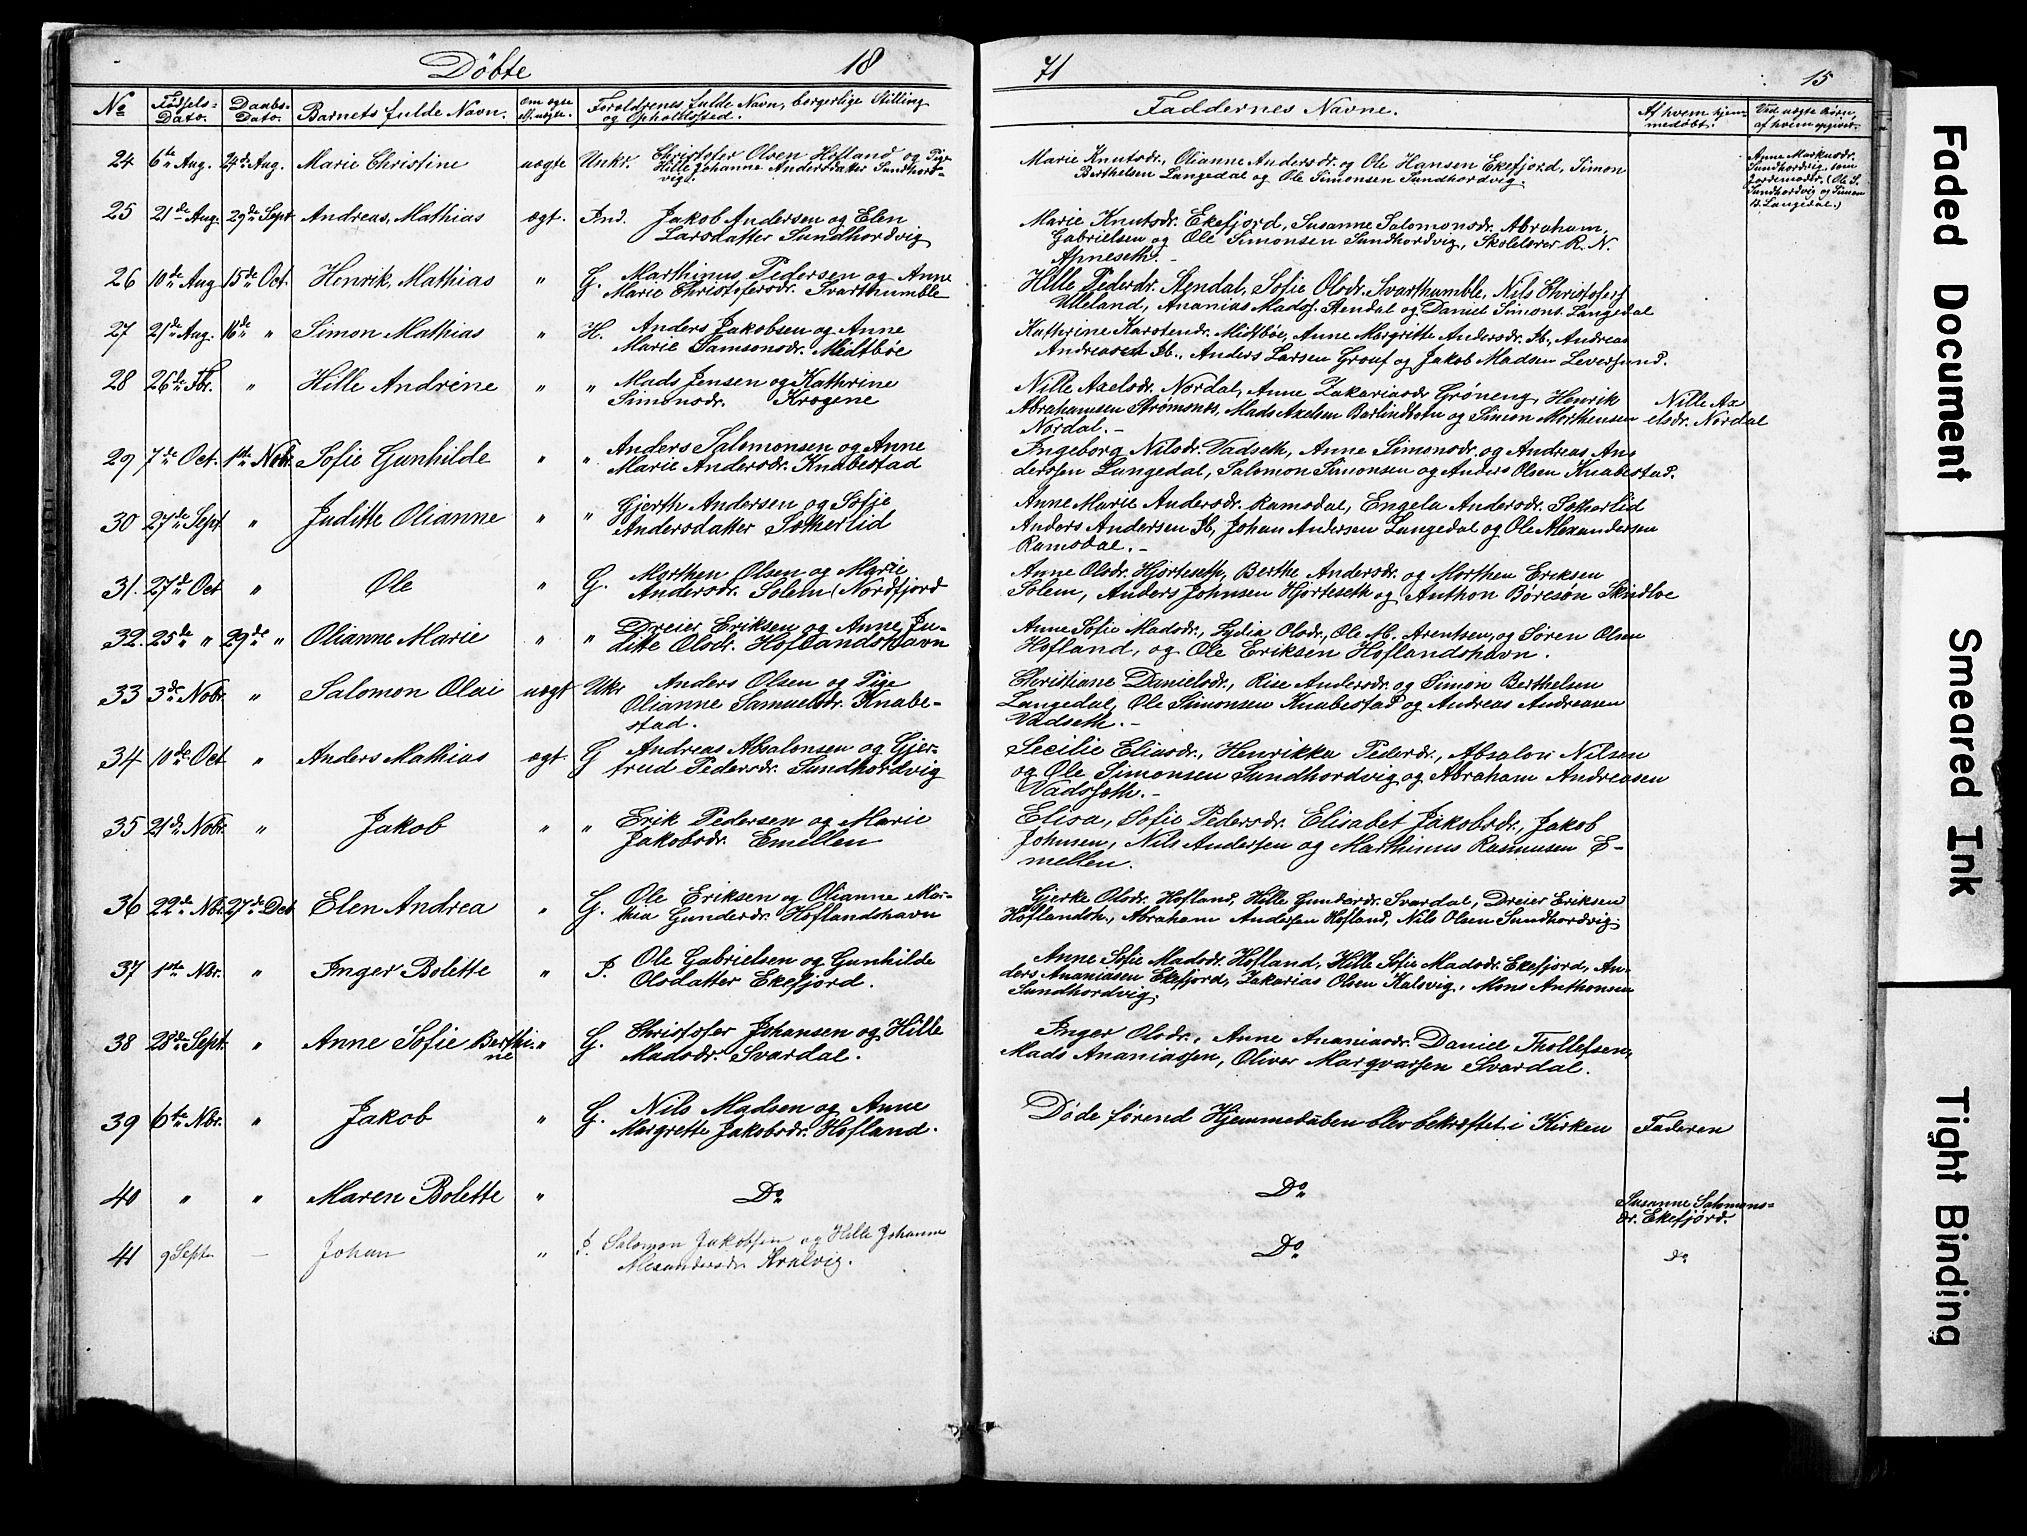 Döbte 18
71 15
No Fødsels-Dato. Daabs-Dato. Barnets fulde Navn. Om ægte el. uægte. Forældrenes fulde Navn, borgerlige Stilling og Opholdssted.
Faddernes Navne. Af hvem hjemmedøbt. Ved uægte Børn, af hvem opgivet.
24 6te Aug. 24de Aug. Marie Christine uægte Unkr. Christofer Olsen Hofland og Pige
Hille Johanne Andersdatter Sundhord-
vig.
Marie Knutsdr., Olianne Andersdr. og Ole Hansen Ekefjord, Simon
Berthelsen Langedal og Ole Simonsen Sundhordvig.
Anne Markusdr.
Sundhordvig, som
Jordemoder. (Ole S.
Sundhordvig og Simon
B. Langedal.)
25 21de Aug. 29de Sept Andreas Mathias ægt. Ind. Jakob Andersen og Elen
Larsdatter Sundhordvig
Marie Knutsdr. Ekefjord, Susanne Salomonsdr. Abraham
Gabrielsen og Ole Simonsen Sundhordvig, Skolelærer R. N.
Apneseth. -
26 10de Aug 15de Oct. Henrik Mathias " G. Marthinus Pedersen og Anne
Marie Christofersdr. Svarthumble
Hille Pedersdr. Aendal, Sofie Olsdr. Svarthumble, Nils Christofers
Ulleland, Ananias Mads. Aendal og Daniel Simons. Langedal
27 21de Aug. 16de " Simon Mathias " H. Anders Jakobsen og Anne
Marie Samsonsdr. Midtbøe
Kathrine Karstendr. Midtbøe, Anne Margritte Andersdr. Ib., Andreas
Andreaset Ib., Anders Larsen Grouf og Jakob Madsen Leversund.
28 26de Fbr. " Hille Andrine " " Mads Jensen og Kathrine
Simonsdr. Krogene
Nille Axelsdr. Nordal, Anne Zakariasdr Grøneng, Henrik
Abrahamsen Strømsnts, Mads Axelsen Barlindbotn og Simon Morthensen
Nordal. -
Nille Ax
elsdr. Nordal
29 7de Oct. 1ste Nobr. Sofie Gunhilde " " Anders Salomonsen og Anne
Marie Andersdr. Knabestad
Ingeborg Nilsdr. Vadseth, Anne Simonsdr. og Andreas An-
derssen Langedal, Salomon Simonsen og Anders Olsen Knabestad.
30 27de Sept " Juditte Olianne " " Gjerth Andersen og Sofie
Andersdatter Sotherlid
Anne Marie Andersdr. Ramsdal, Engela Andersdr. Sotherlid
Anders Andersen Ib, Johan Andersen Langedal og Ole Alexandersen
Ramsdal. -
31. 27de Oct " Ole " G. Morthen Olsen og Marie
Andersdr. Solem (Nordfjord
Anne Olsdr. Hjorteseth, Berthe Andersdr. og Morthen Eriksen
Solem, Anders Johnsen Hjorteseth og Anthon Børesøn Skindloe
32. 25de " 29de " Olianne Marie " " Dreier Eriksen og Anne Ju-
ditte Olsdr. Hoflandshavn
Anne Sofie Madsdr., Lydia Olsdr., Ole M. Arentsen, og Søren Olsen
Hofland, og Ole Eriksen Hoflandshavn.
33 3de Nobr. " Salomon Olai uægt Ukr Anders Olsen og Pige
Olianne Samuelsdr. Knabe-
stad.
Christiane Danielsdr., Rise Andersdr. og Simon Berthelsen
Langedal, Ole Simonsen Knabestad og Andreas Andreasen
Vadseth. -
34 10de Oct " Anders Mathias ægt. G Andreas Absalonsen og Gjer-
trud Pedersdr. Sundhordvig
Secilie Eliasdr., Henrikka Pederdr., Absalon Nilsen
og Ole Simonsen Sundhordvig og Abraham Andreasen
Vadsseth. -
35 21de Nobr. " Jakob " " Erik Pedersen og Marie
Jakobsdr. Emellen
Elisa, Sofie Pedersdr. Elisabet Jakobsdr., Jakob
Johnsen, Nils Andersen og Marthinus Rasmusen E-
mellen.
36 22de Nbr. 27de Dec Elen Andrea " G. Ole Eriksen og Olianne Mar-
thea Gunderdr. Hoflandshavn
Gjerke Olsdr. Hofland, Hille Gunderdr. Svardal, Dreier Eriksen
Hoflandsh., Abraham Andersen Hofland, Nils Olsen Sundhordvig.
37 1ste Nbr. " Inger Bolette " I. Ole Gabrielsen og Gunhilde
Olsdatter Ekefjord.
Anne Sofie Madsdr. Hofland, Hille Sofie Madsdr. Ekefjord, An-
ders Ananiasen Ekefjord, Zakarias Olsen Kalsvig, Mons Anthonsen
Sundhordvig.
38 28de Sept. " Anne Sofie Berthi-
ne " G. Christofer Johansen og Hille
Madsdr. Svardal.
Inger Olsdr., Anne Ananiasdr. Daniel Thollefsen,
Mads Ananiassen, Oliver Marqvarsen Svardal.
39 6te Nbr. " Jakob " G. Nils Madsen og Anne
Margrette Jakobsdr. Hofland.
Døde førend Hjemmedåben blev bekræftet i Kirken Faderen
40 " " Maren Bolette " Do Do
Susanne Salomons-
dr. Ekefjord.
41 9 Sept. - Johan " I. Salomon Jakobsen og Hille Johanne
Alexandersdr. Kralvig.
Do do
Faded Document
Smeared Ink
Tight Binding